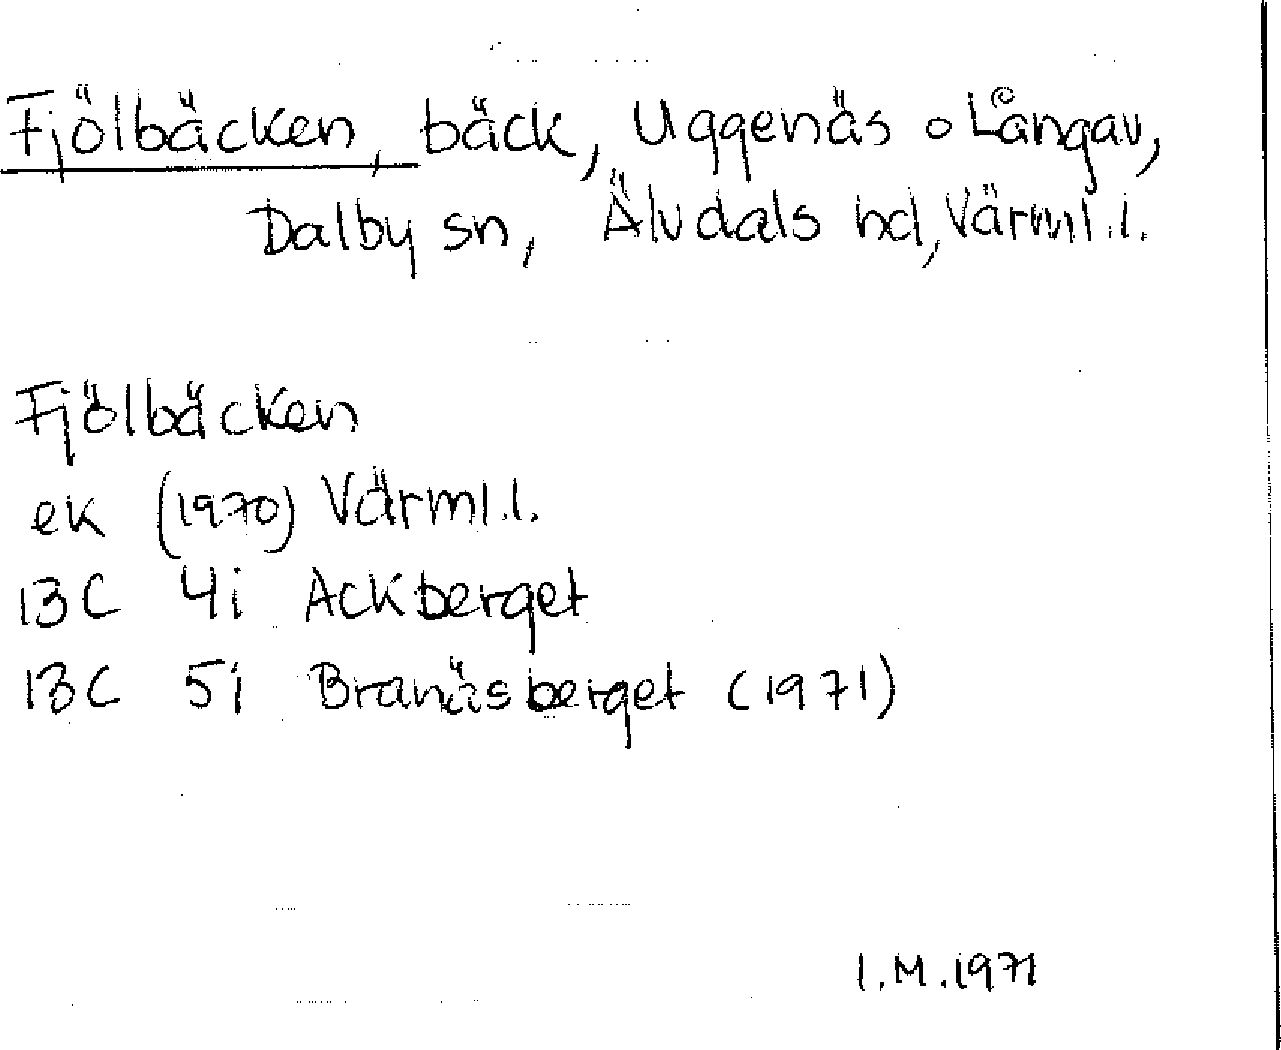 Fjölbäcken, bäck, Uggenäs o Långav,
Dalby sn, Älvdals hd, Värml.l.
Fjölbäcken
ek (1970) Värml.l.
13C 4i Ackberget
13C 5i Branäsberget (1971)
I.M.1971